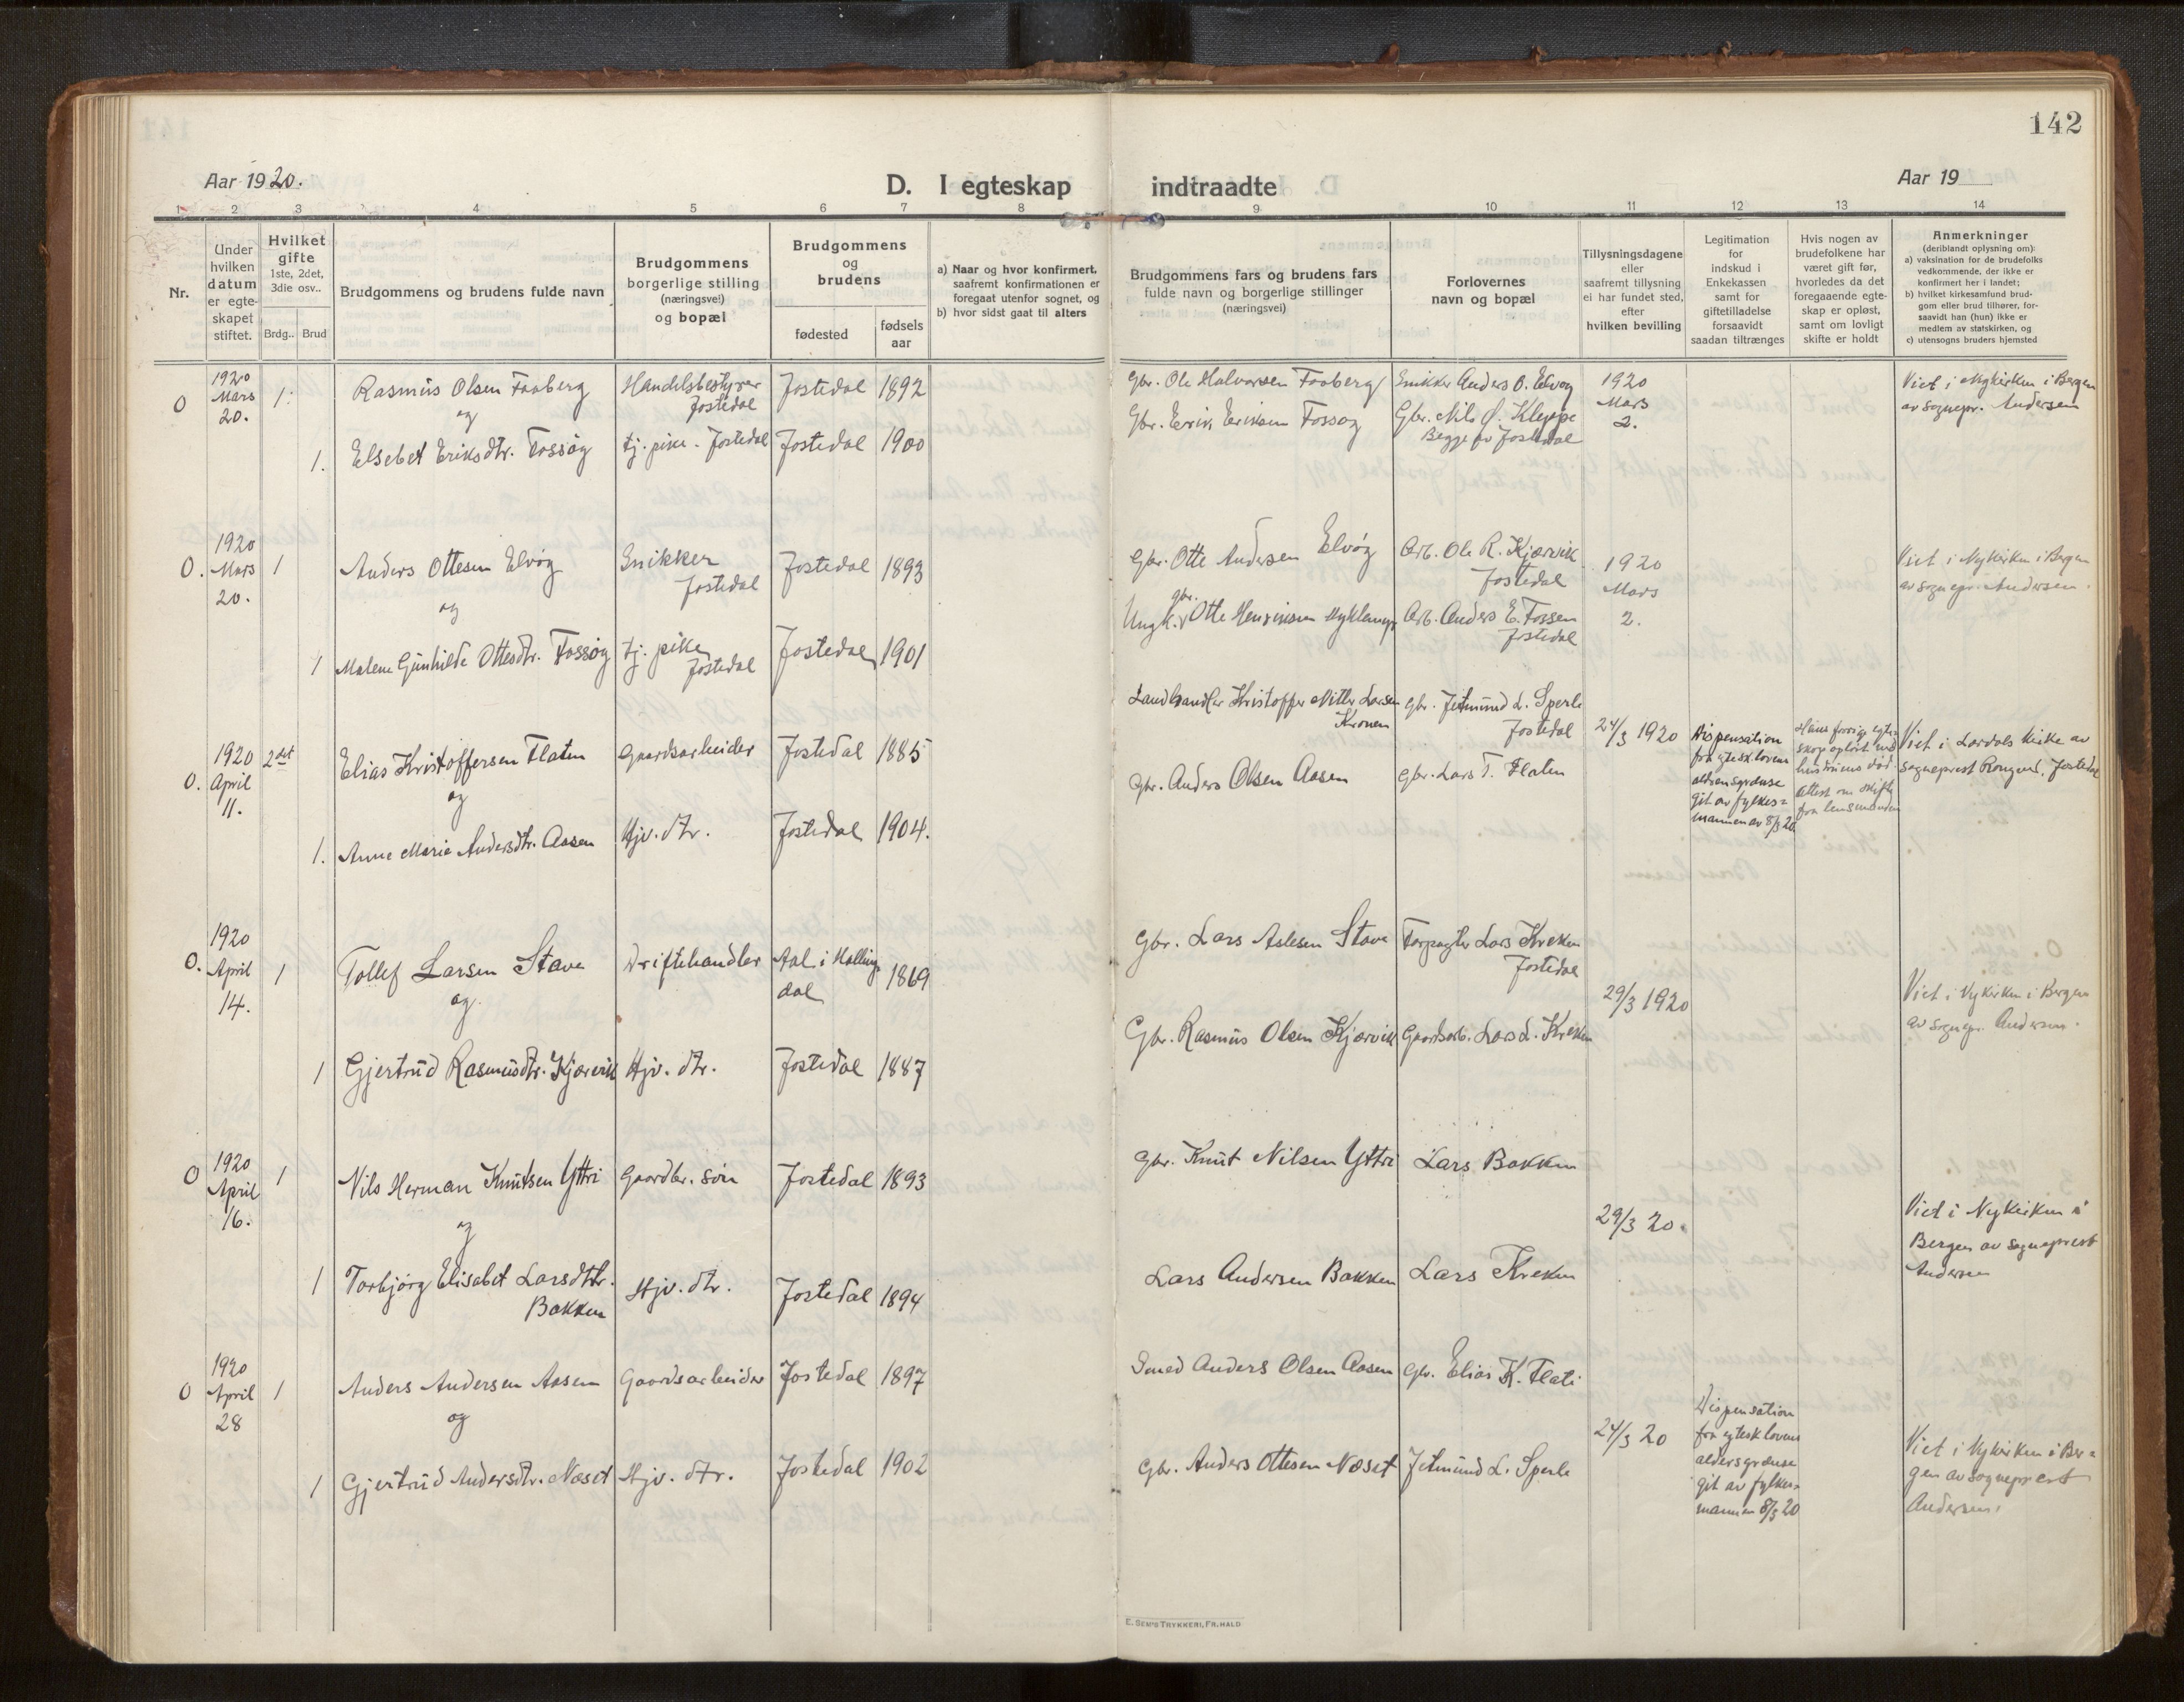 142
Aar 1920.
D. I egteskap indtraadte
Aar 19
1 2 3 4 5 6 7 8 9 10 11 12 13 14
Nr.
Under
hvilken
datum
er egte-
skapet
stiftet.
Hvilket
gifte
1ste, 2det,
3die osv..
Brdg.. Brud
Brudgommens og brudens fulde navn
Brudgommens
borgerlige stilling
(næringsvei)
og bopæl
Brudgommens
og
brudens
fødested
fødsels
aar
a) Naar og hvor konfirmert,
saafremt konfirmationen er
foregaat utenfor sognet, og
b) hvor sidst gaat til alters
Brudgommens fars og brudens fars
fulde navn og borgerlige stillinger
(næringsvei)
Forlovernes
navn og bopæl
Tillysningsdagene
eller
saafremt tillysning
ei har fundet sted,
efter
hvilken bevilling
Legitimation
for
indskud i
Enkekassen
samt for
giftetilladelse
forsaavidt
saadan tiltrænges
Hvis nogen av
brudefolkene har
været gift før,
hvorledes da det
foregaaende egte-
skap er opløst,
samt om lovligt
skifte er holdt
Anmerkninger
(deriblandt oplysning om):
a) vaksination for de brudefolks
vedkommende, der ikke er
konfirmert her i landet;
b) hvilket kirkesamfund brud-
gom eller brud tilhører, for-
saavidt han (hun) ikke er
medlem av statskirken, og
c) utensogns bruders hjemsted
0
1920
Mars
20.
1.
Rasmus Olsen Faaberg
og
Handelsbestyrer
Jostedal
Jostedal 1892
Gbr. Ole Halvorsen Faaberg
Snikker Anders O. Elvøy
1920
Mars
2.
Viet i Nykirken i Bergen
av sognepr. Andersen
1.
Elsebet Eriksdtr. Fossøy
tj. pike. Jostedal
Jostedal 1900
Gbr. Erik Eriksen Fossøy
Gbr. Nils O. Kleppe
Begge av Jostedal
0.
1920
Mars
20.
1
Anders Ottesen Elvøy
og
Snikker
Jostedal
Jostedal 1893
Gbr. Otte Andersen Elvøy
Arb. Ole R. Kjærvik
Jostedal
1920
Mars
2.
Viet i Nykirken i Bergen
av sognepr. Andersen.
1
Malene Gunhilde Ottesdtr. Fossøy
tj. pike
Jostedal
Jostedal 1901
gbr.
Ungk. Otte Henriksen Myklemyr
Arb. Anders E. Fossen
Jostedal
0.
1920
April
11.
2det
Elias Kristoffersen Flaten
og
Gaardsarbeider
Jostedal 1885
Landhandler Kristoffer Nitter Larsen
Kronen
Gbr. Jetmund L. Sperle
Jostedal
24/3 1920
Dispensation
fra egtesk.lovens
aldersgrænse
git av fylkes=
mannen av 8/3 20
Hans forrige egte-
skap opløst ved
hustruens død.
Attest om skifte
fra lensmanden
Viet i Jordals kirke av
sogneprest Jostedal
1.
Anne Marie Andersdtr. Aasen
Hjv. dtr.
Jostedal 1904.
Gbr. Anders Olsen Aasen
Gbr. Lars T. Flaten
0.
1920
April
14.
1
Tollef Larsen Stave
og
Driftehandler
Aal i Halling-
dal
1869
Gbr. Lars Aslesen Stave
Forpagter Lars Kreken
Jostedal
29/3 1920
Viet i Nykirken i Bergen
av sognepr. Andersen.
1
Gjertrud Rasmusdtr. Kjærvik
Hjv. dtr.
Jostedal 1887
Gbr. Rasmus Olsen Kjærvik
Gaardsarb. Lars L. Kreken
0
1920
April
16.
1
Nils Herman Knutsen Yttri
og
Gaardbr. søn
Jostedal 1893
Gbr. Knut Nilsen Yttri
Lars Bakken
29/3 20.
Viet i Nykirken i
Bergen av sogneprest
Andersen
1
Torbjørg Elisabet Larsdtr.
Bakken
Hjv. dtr.
Jostedal 1894
Lars Andersen Bakken
Lars Kreken
0
1920
April
28
1
Anders Andersen Aasen
og
Gaardsarbeider
Jostedal 1897
Smed Anders Olsen Aasen
Gbr. Elias K. Flati
24/3 20
Dispensation
fra egtesk.lovens
aldersgrænse
git av fylkes=
mannen 8/3 20
Viet i Nykirken i Ber=
gen av sogneprest
Andersen.
1
Gjertrud Andersdtr. Næset
Hjv. dtr.
Jostedal 1902
Gbr. Anders Ottesen Næset
Jetmund L. Sperle
E. SEM'S TRYKKERI, FR.HALD